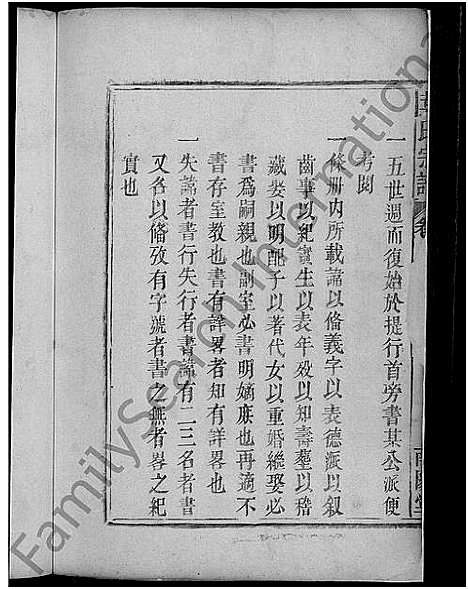 一五世週而復始於提行首旁書某公派便
考閱
一條册内所載諱以脩義字以表德派以叙
齒事以紀實生以表年歿以知壽墓以稽
藏娶以明配子以著代女以重婚繼娶必
書爲嗣親也副室必書明嫡庶也再適不
書存室教也書有詳畧者知有詳畧也
一失諱者書行失行者書諱有二三名者書
又各以脩攷有字號者書之無者畧之紀
實也
氏宗譜
卷
堂
FamilySearch International